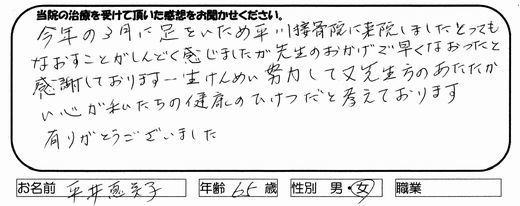 当院の治療を受けて頂いた感想をお聞かせください。
今年の3月に足をいため平川接骨院に来院しましたとっても
なおすことがしんどく感じましたが先生のおかげで早くなおったと
感謝しております一生けんめい努力して又先生方のあたたか
い心が私たちの健康のひけつだと考えております
有りがとうございました
お名前 平井恵美子 年齢 65 歳 性別 男・女 職業